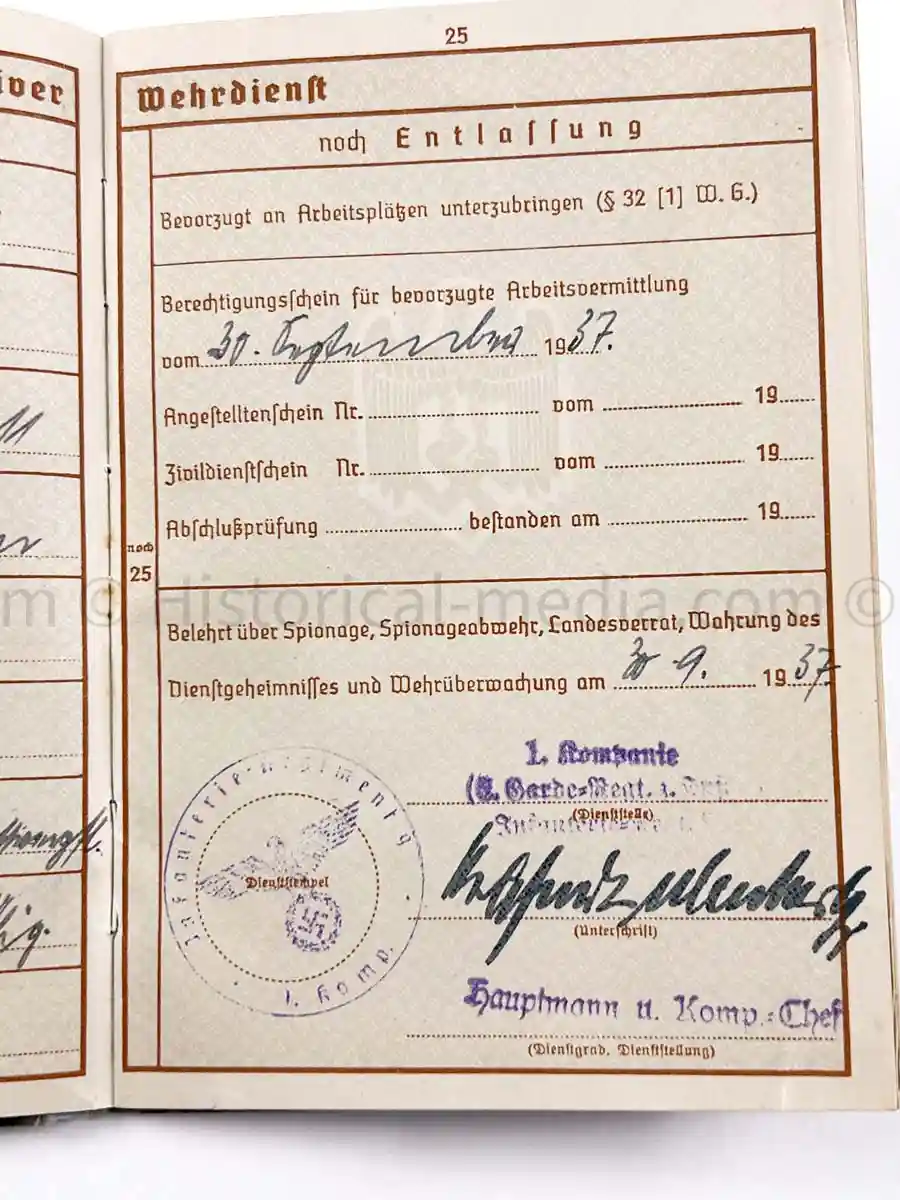 25
iver
Wehrdienst
noch Entlassung
Bevorzugt an Arbeitsplätzen unterzubringen (§ 32 [1] W. G.)
Berechtigungsschein für bevorzugte Arbeitsvermittlung
vom 30. September 1937.
Angestelltenschein Nr. vom 19
Zivildienstschein Nr. vom 19
Abschlußprüfung bestanden am 19
noch
25
11
m © Historical-media.com ©
Belehrt über Spionage, Spionageabwehr, Landesverrat, Wahrung des
Dienstgeheimnisses und Wehrüberwachung am 30 9. 1937
1. Kompanie
Garde-Regt. z.
(Dienststelle)
Infanterie-
Infanterie-Regiment 9
Dienststempel
1. Komp.
(Unterschrift)
Hauptmann u. Komp.-Chef
(Dienstgrad, Dienststellung)